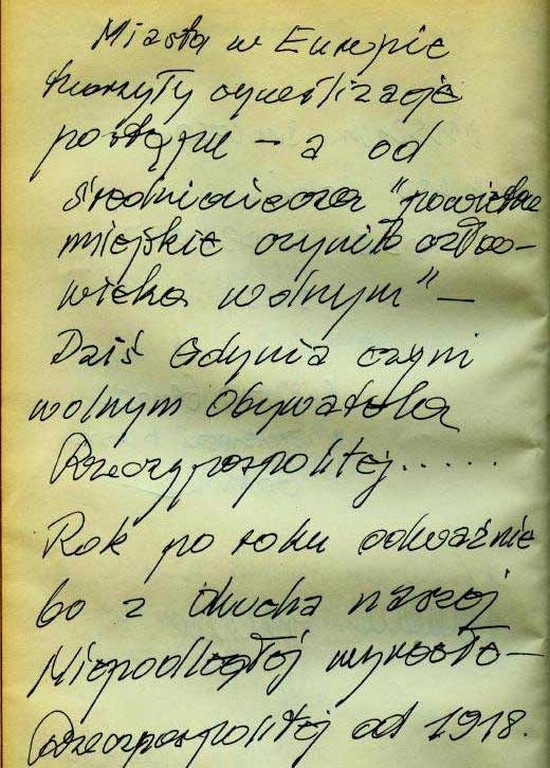 Miasta w Europie
tworzyły cywilizację
postępu – a od
średniowiecza "powietrze
miejskie czyniło czło-
wieka wolnym" –
Dziś Gdynia czyni
wolnym Obywatela
Rzeczypospolitej......
Rok po roku odważnie
bo z ducha naszej
Niepodległej wyrosła –
Rzeczpospolitej od 1918.